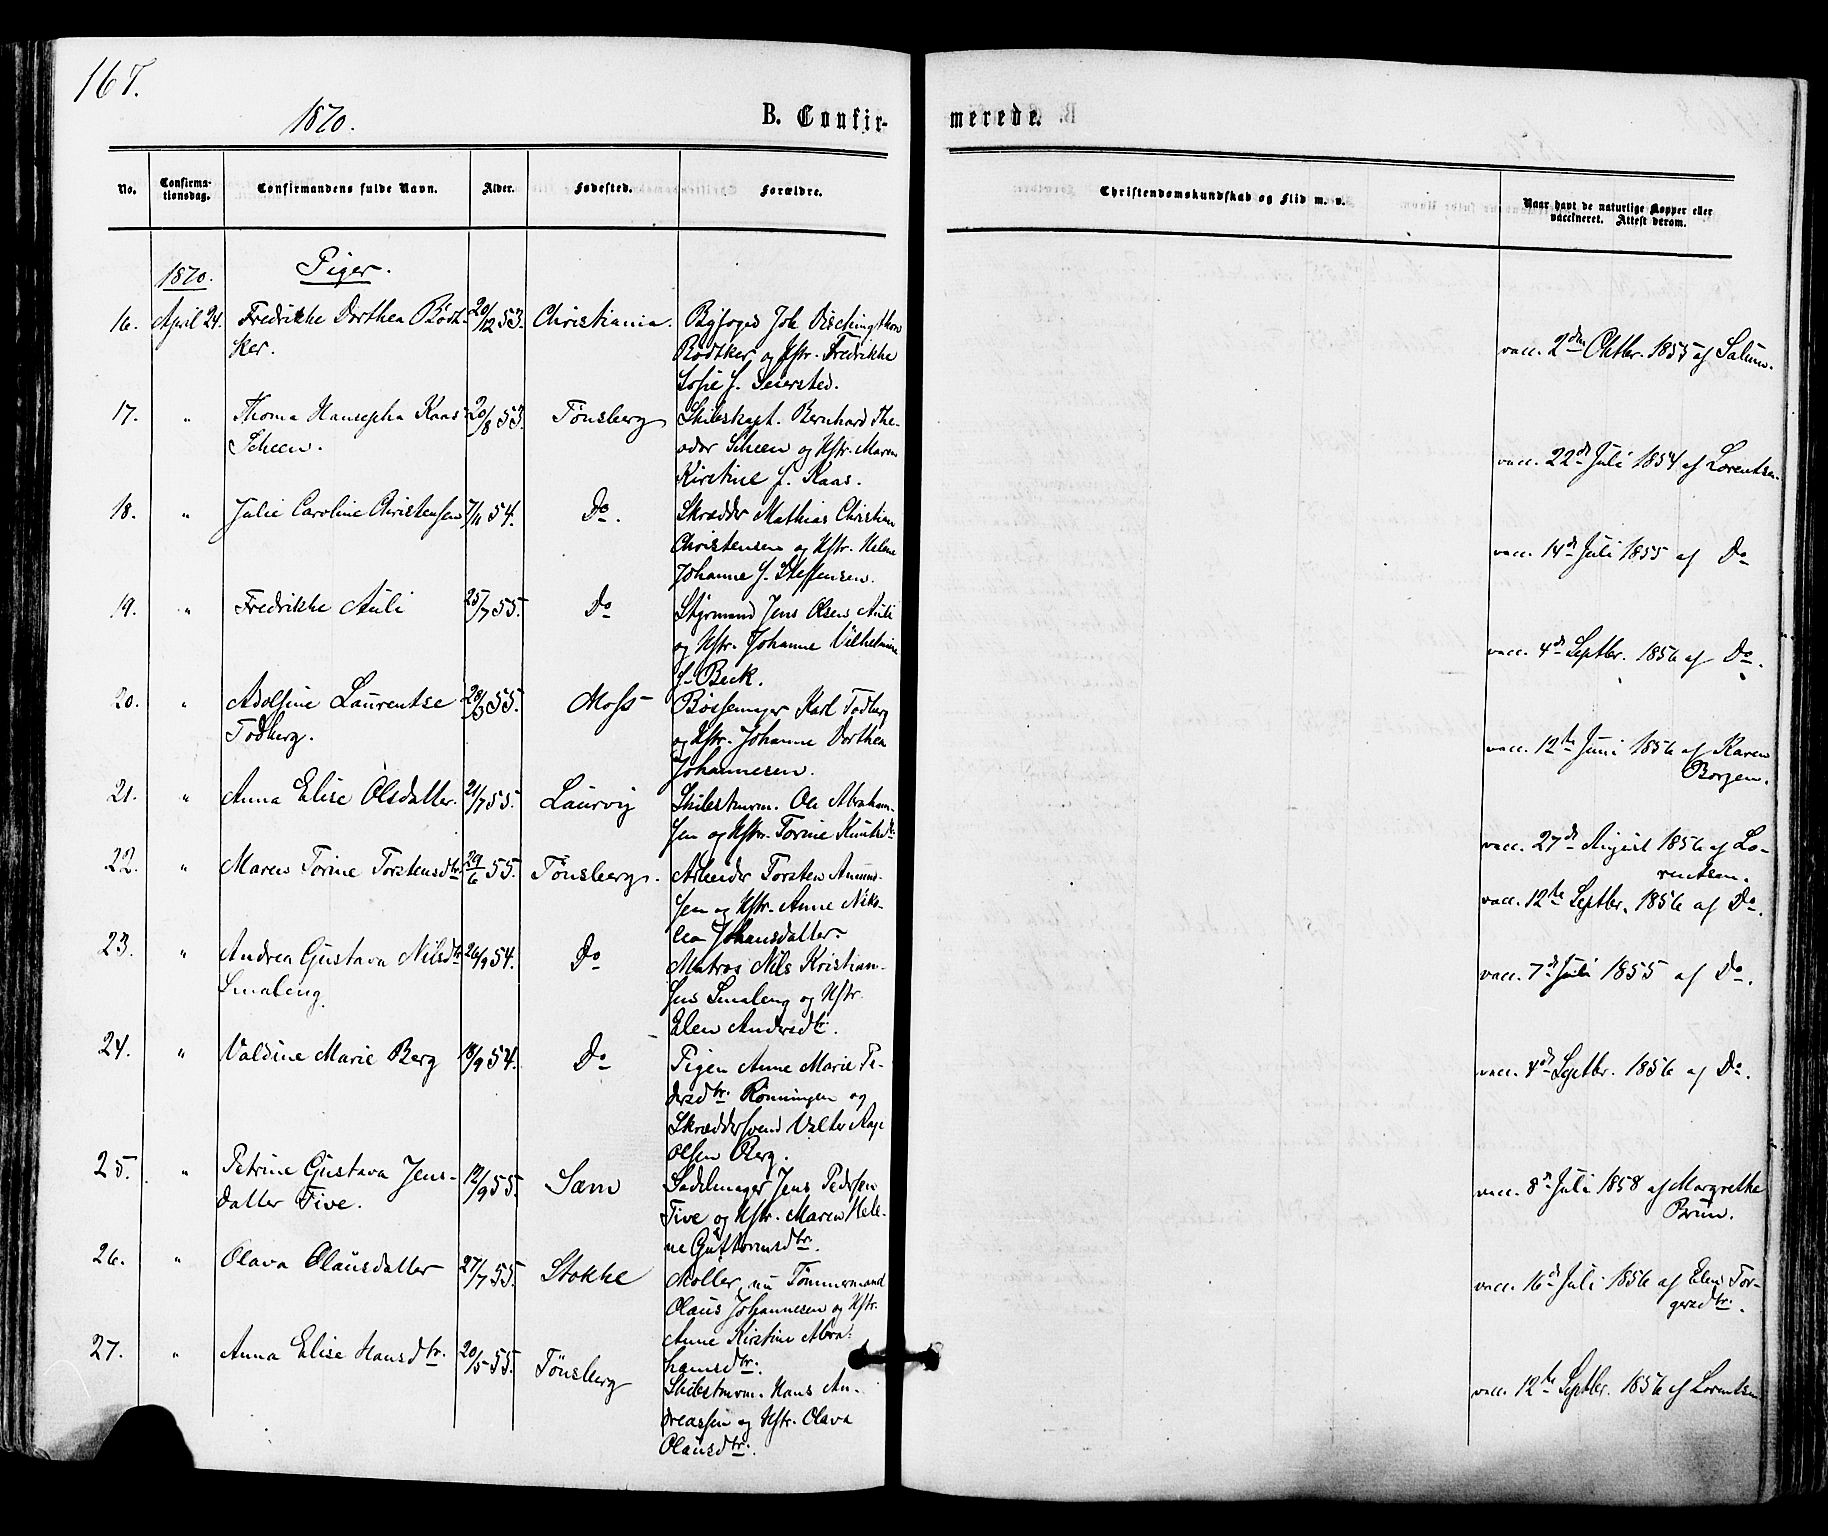 167.
1870.
B. Confir-
merede.
No.
Confirma-
tionsdag.
Confirmandens fulde Navn.
Alder.
Fødested.
Forældre.
Christendomskundskab og Flid m. v.
Naar havt de naturlige Kopper eller
vaccineret. Attest derom.
1870.
Piger.
16. April 24. Fredrikke Dorthea Bødt- 20/12 53. Christiania. Byfoged Joh
ker. Bødtker og Hstr. Fredrikke
Sofie f. Seiersted.
vacc. 2den Oktbr. 1855 af
17. " Thoma Hansepha Kaas 20/8 53. Tönsberg Skibskapt. Bernhard The-
Scheen. odor Scheen og Hstr. Maren
Kirstine f. Kaas.
vacc. 22de Juli 1854 af Lorentsen.
18. " Julie Caroline Christensen 7/11 54. Do. Skrædder Mathias Christian
Christensen og Hstr. Helene
Johanne f. Steffensen.
vacc. 14de Juli 1855 af Do
19. " Fredrikke Auli 25/7 55. Do Styrmand Jens Olsen Auli
og Hstr. Johanne Vilhelmine
f. Beck.
vacc. 4de Septbr. 1856 af Do.
20. " Adolfine Laurentse 28/3 55. Moss Bøssemager Karl Todberg
Todberg. og Hstr. Johanne Dorthea
Johannesen.
vacc. 12te Juni 1856 af Karen
Borgen.
21. " Anna Elise Olsdatter. 21/7 55. Laurvig Skibstmrm. Ole Abraham-
sen og Hstr. Torine Knutsdtr
vacc. 27de August 1856 af Lo-
rentsen.
22. " Maren Torine Torstensdtr. 29/6 55. Tönsberg. Arbeider Torsten Amund-
sen og Hstr. Anne Niko-
lea Johansdatter.
vacc. 12te Septbr. 1856 af Do.
23. " Andrea Gustava Nilsdtr 26/9 54. Do Matros Nils Kristian-
Smaleng. sen Smaleng og Hstr.
Elen Andersdtr.
vacc. 7de Juli 1855 af Do.
24. " Valdine Marie Berg 18/9 54. Do Pigen Anne Marie Pe-
dersdtr. Rönningen og
Skræddersvend Valter Aage
Olsen Berg.
vacc. 4de Septbr. 1856 af Do.
25. " Petrine Gustava Jens- 12/9 55. Sæm Sadelmager Jens Pedersen
datter Tive. Tive og Hstr. Maren Hele-
ne Guttormsdtr.
vacc. 8de Juli 1858 af Margrethe
Brun.
26. " Olava Olausdatter 27/7 55. Stokke Møller, nu Tömmermand
Olaus Johannesen og Hstr.
Anne Kirstine Abra-
hamsdtr.
vacc. 16de Juli 1856 af Elen Tor-
gersdtr.
27. " Anna Elise Hansdtr. 20/5 55. Tönsberg Skibstmrm. Hans An-
dreassen og Hstr. Olava
Olausdtr.
vacc. 12te Septbr. 1856 af Lorentsen